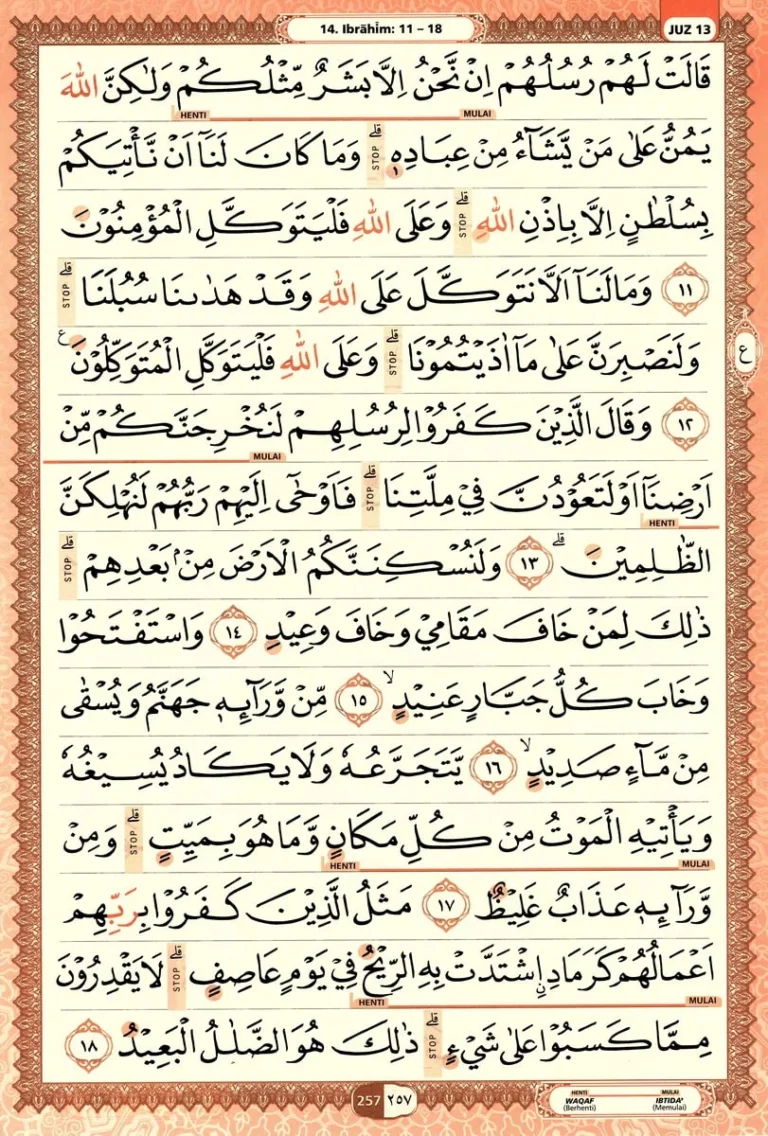 14. Ibrāhīm: 11 – 18
JUZ 13
قَالَتْ لَهُمْ رُسُلُهُمْ اِنْ نَّحْنُ اِلَّا بَشَرٌ مِّثْلُكُمْ وَلٰكِنَّ اللّٰهَ
HENTI MULAI
يَمُنُّ عَلٰى مَنْ يَّشَاۤءُ مِنْ عِبَادِهٖ ۗ STOP وَمَا كَانَ لَنَآ اَنْ نَّأْتِيَكُمْ
بِسُلْطٰنٍ اِلَّا بِاِذْنِ اللّٰهِ ۗ STOP وَعَلَى اللّٰهِ فَلْيَتَوَكَّلِ الْمُؤْمِنُوْنَ
١١ وَمَا لَنَآ اَلَّا نَتَوَكَّلَ عَلَى اللّٰهِ وَقَدْ هَدٰىنَا سُبُلَنَا ۗ STOP
وَلَنَصْبِرَنَّ عَلٰى مَآ اٰذَيْتُمُوْنَا ۗ STOP وَعَلَى اللّٰهِ فَلْيَتَوَكَّلِ الْمُتَوَكِّلُوْنَ ع
ع
١٢ وَقَالَ الَّذِيْنَ كَفَرُوْا لِرُسُلِهِمْ لَنُخْرِجَنَّكُمْ مِّنْ
MULAI
اَرْضِنَآ اَوْ لَتَعُوْدُنَّ فِيْ مِلَّتِنَا ۗ STOP فَاَوْحٰٓى اِلَيْهِمْ رَبُّهُمْ لَنُهْلِكَنَّ
HENTI
الظّٰلِمِيْنَ ۗ ١٣ وَلَنُسْكِنَنَّكُمُ الْاَرْضَ مِنْۢ بَعْدِهِمْ ۗ STOP
ذٰلِكَ لِمَنْ خَافَ مَقَامِيْ وَخَافَ وَعِيْدِ ١٤ وَاسْتَفْتَحُوْا
وَخَابَ كُلُّ جَبَّارٍ عَنِيْدٍ ۙ ١٥ مِّنْ وَّرَاۤىِٕهٖ جَهَنَّمُ وَيُسْقٰى
مِنْ مَّاۤءٍ صَدِيْدٍ ۙ ١٦ يَّتَجَرَّعُهٗ وَلَا يَكَادُ يُسِيْغُهٗ
وَيَأْتِيْهِ الْمَوْتُ مِنْ كُلِّ مَكَانٍ وَّمَا هُوَ بِمَيِّتٍ ۗ STOP وَمِنْ
HENTI MULAI
وَّرَاۤىِٕهٖ عَذَابٌ غَلِيْظٌ ١٧ مَثَلُ الَّذِيْنَ كَفَرُوْا بِرَبِّهِمْ
اَعْمَالُهُمْ كَرَمَادِ ِۨاشْتَدَّتْ بِهِ الرِّيْحُ فِيْ يَوْمٍ عَاصِفٍ ۗ STOP لَا يَقْدِرُوْنَ
HENTI MULAI
مِمَّا كَسَبُوْا عَلٰى شَيْءٍ ۗ STOP ذٰلِكَ هُوَ الضَّلٰلُ الْبَعِيْدُ ١٨
257 ٢٥٧
HENTI WAQAF (Berhenti)
MULAI IBTIDA' (Memulai)